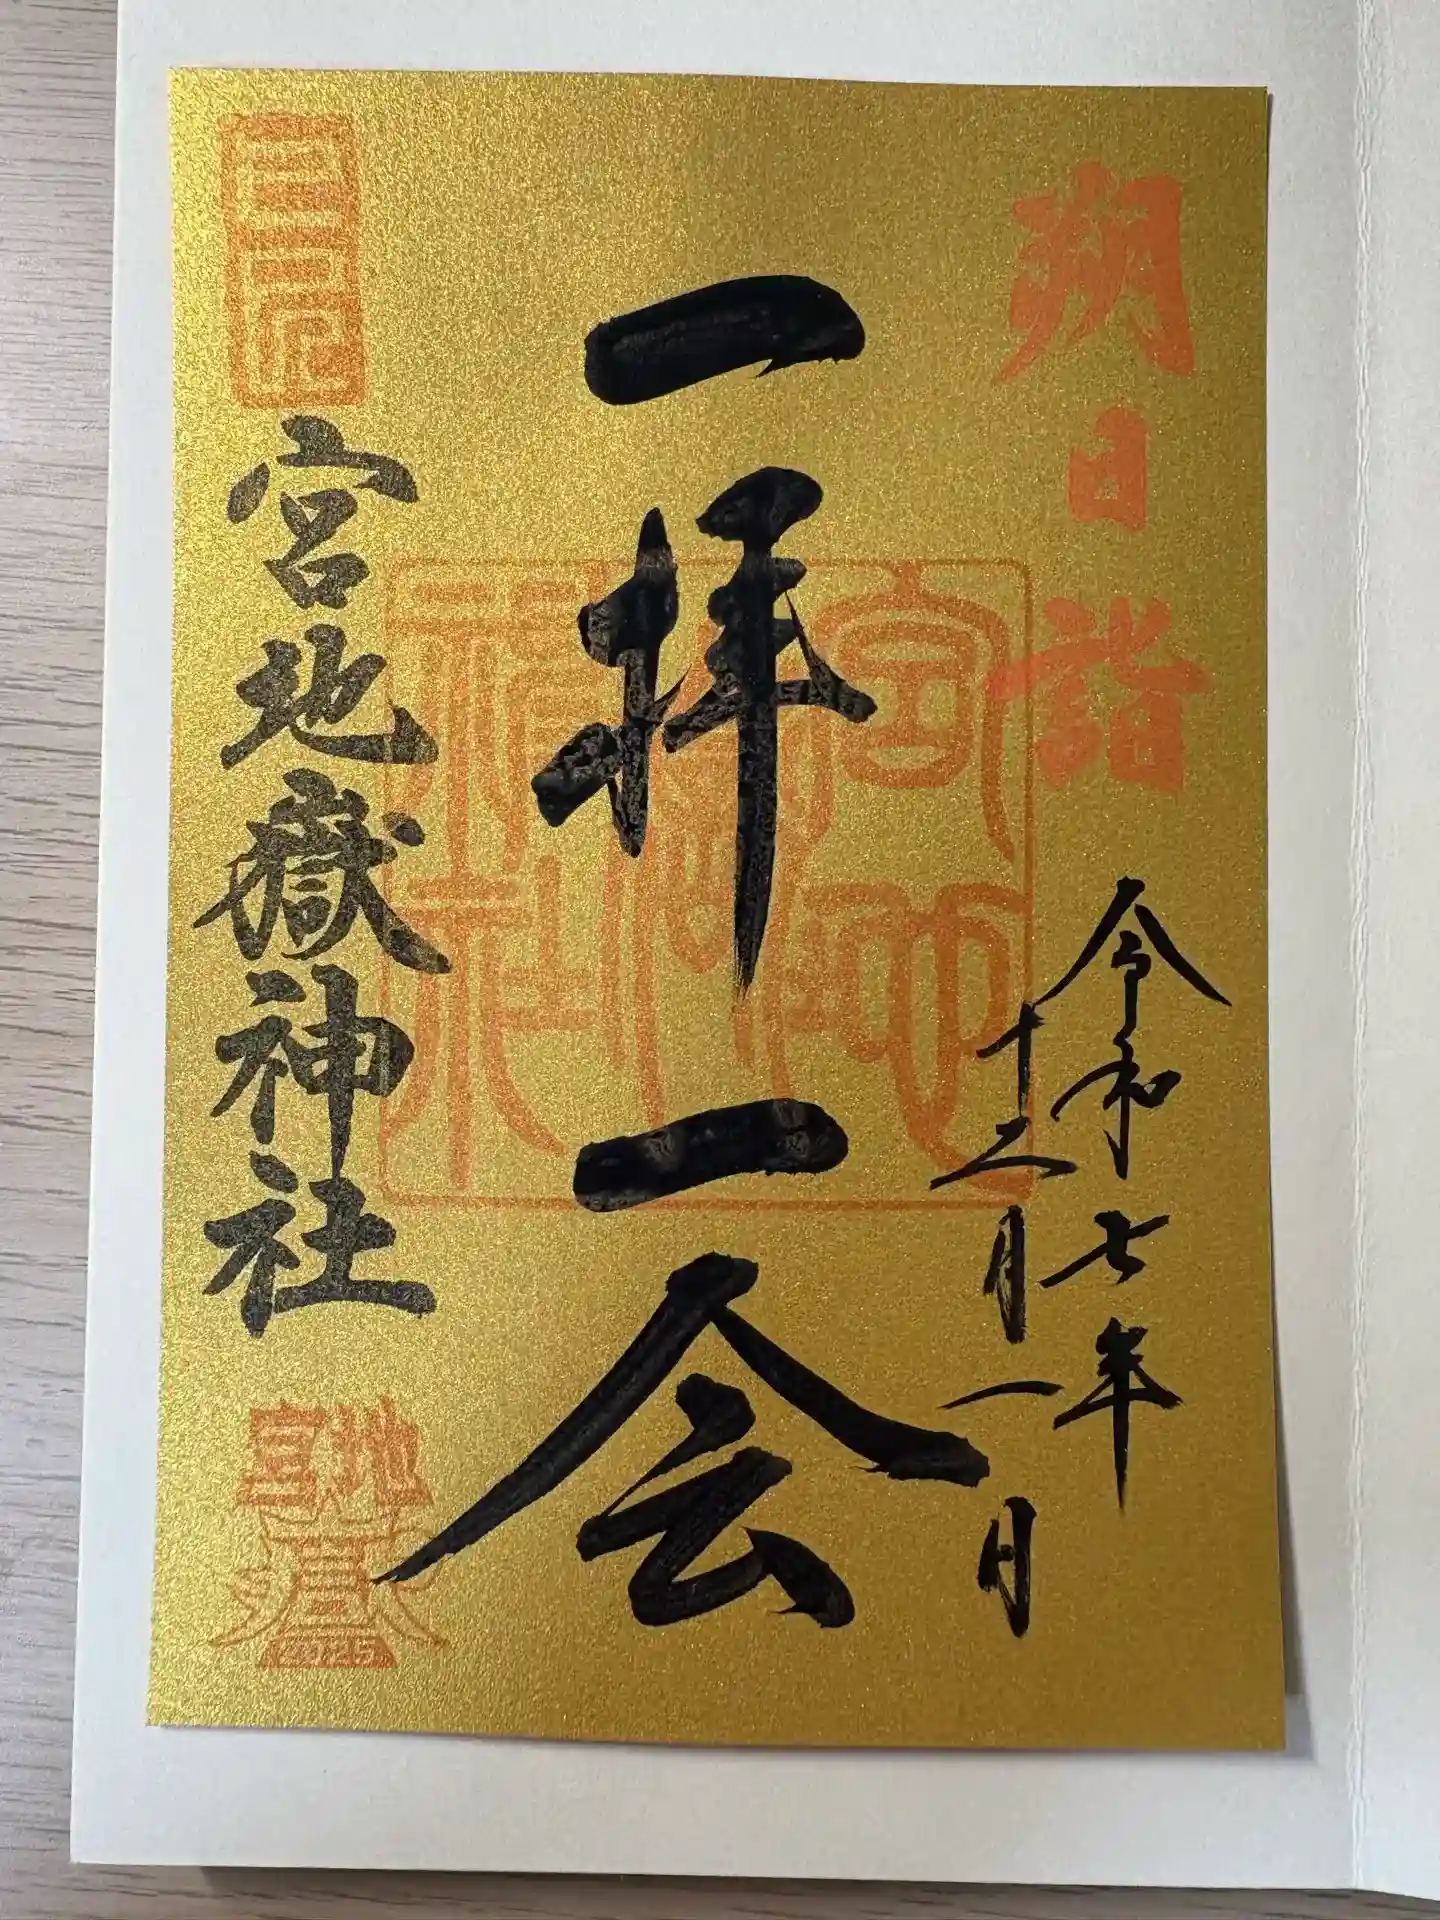 朔日詣
令和七年
十二月一日
一拝一会
宮地嶽神社
宮地嶽神社
宮地
嶽
2025